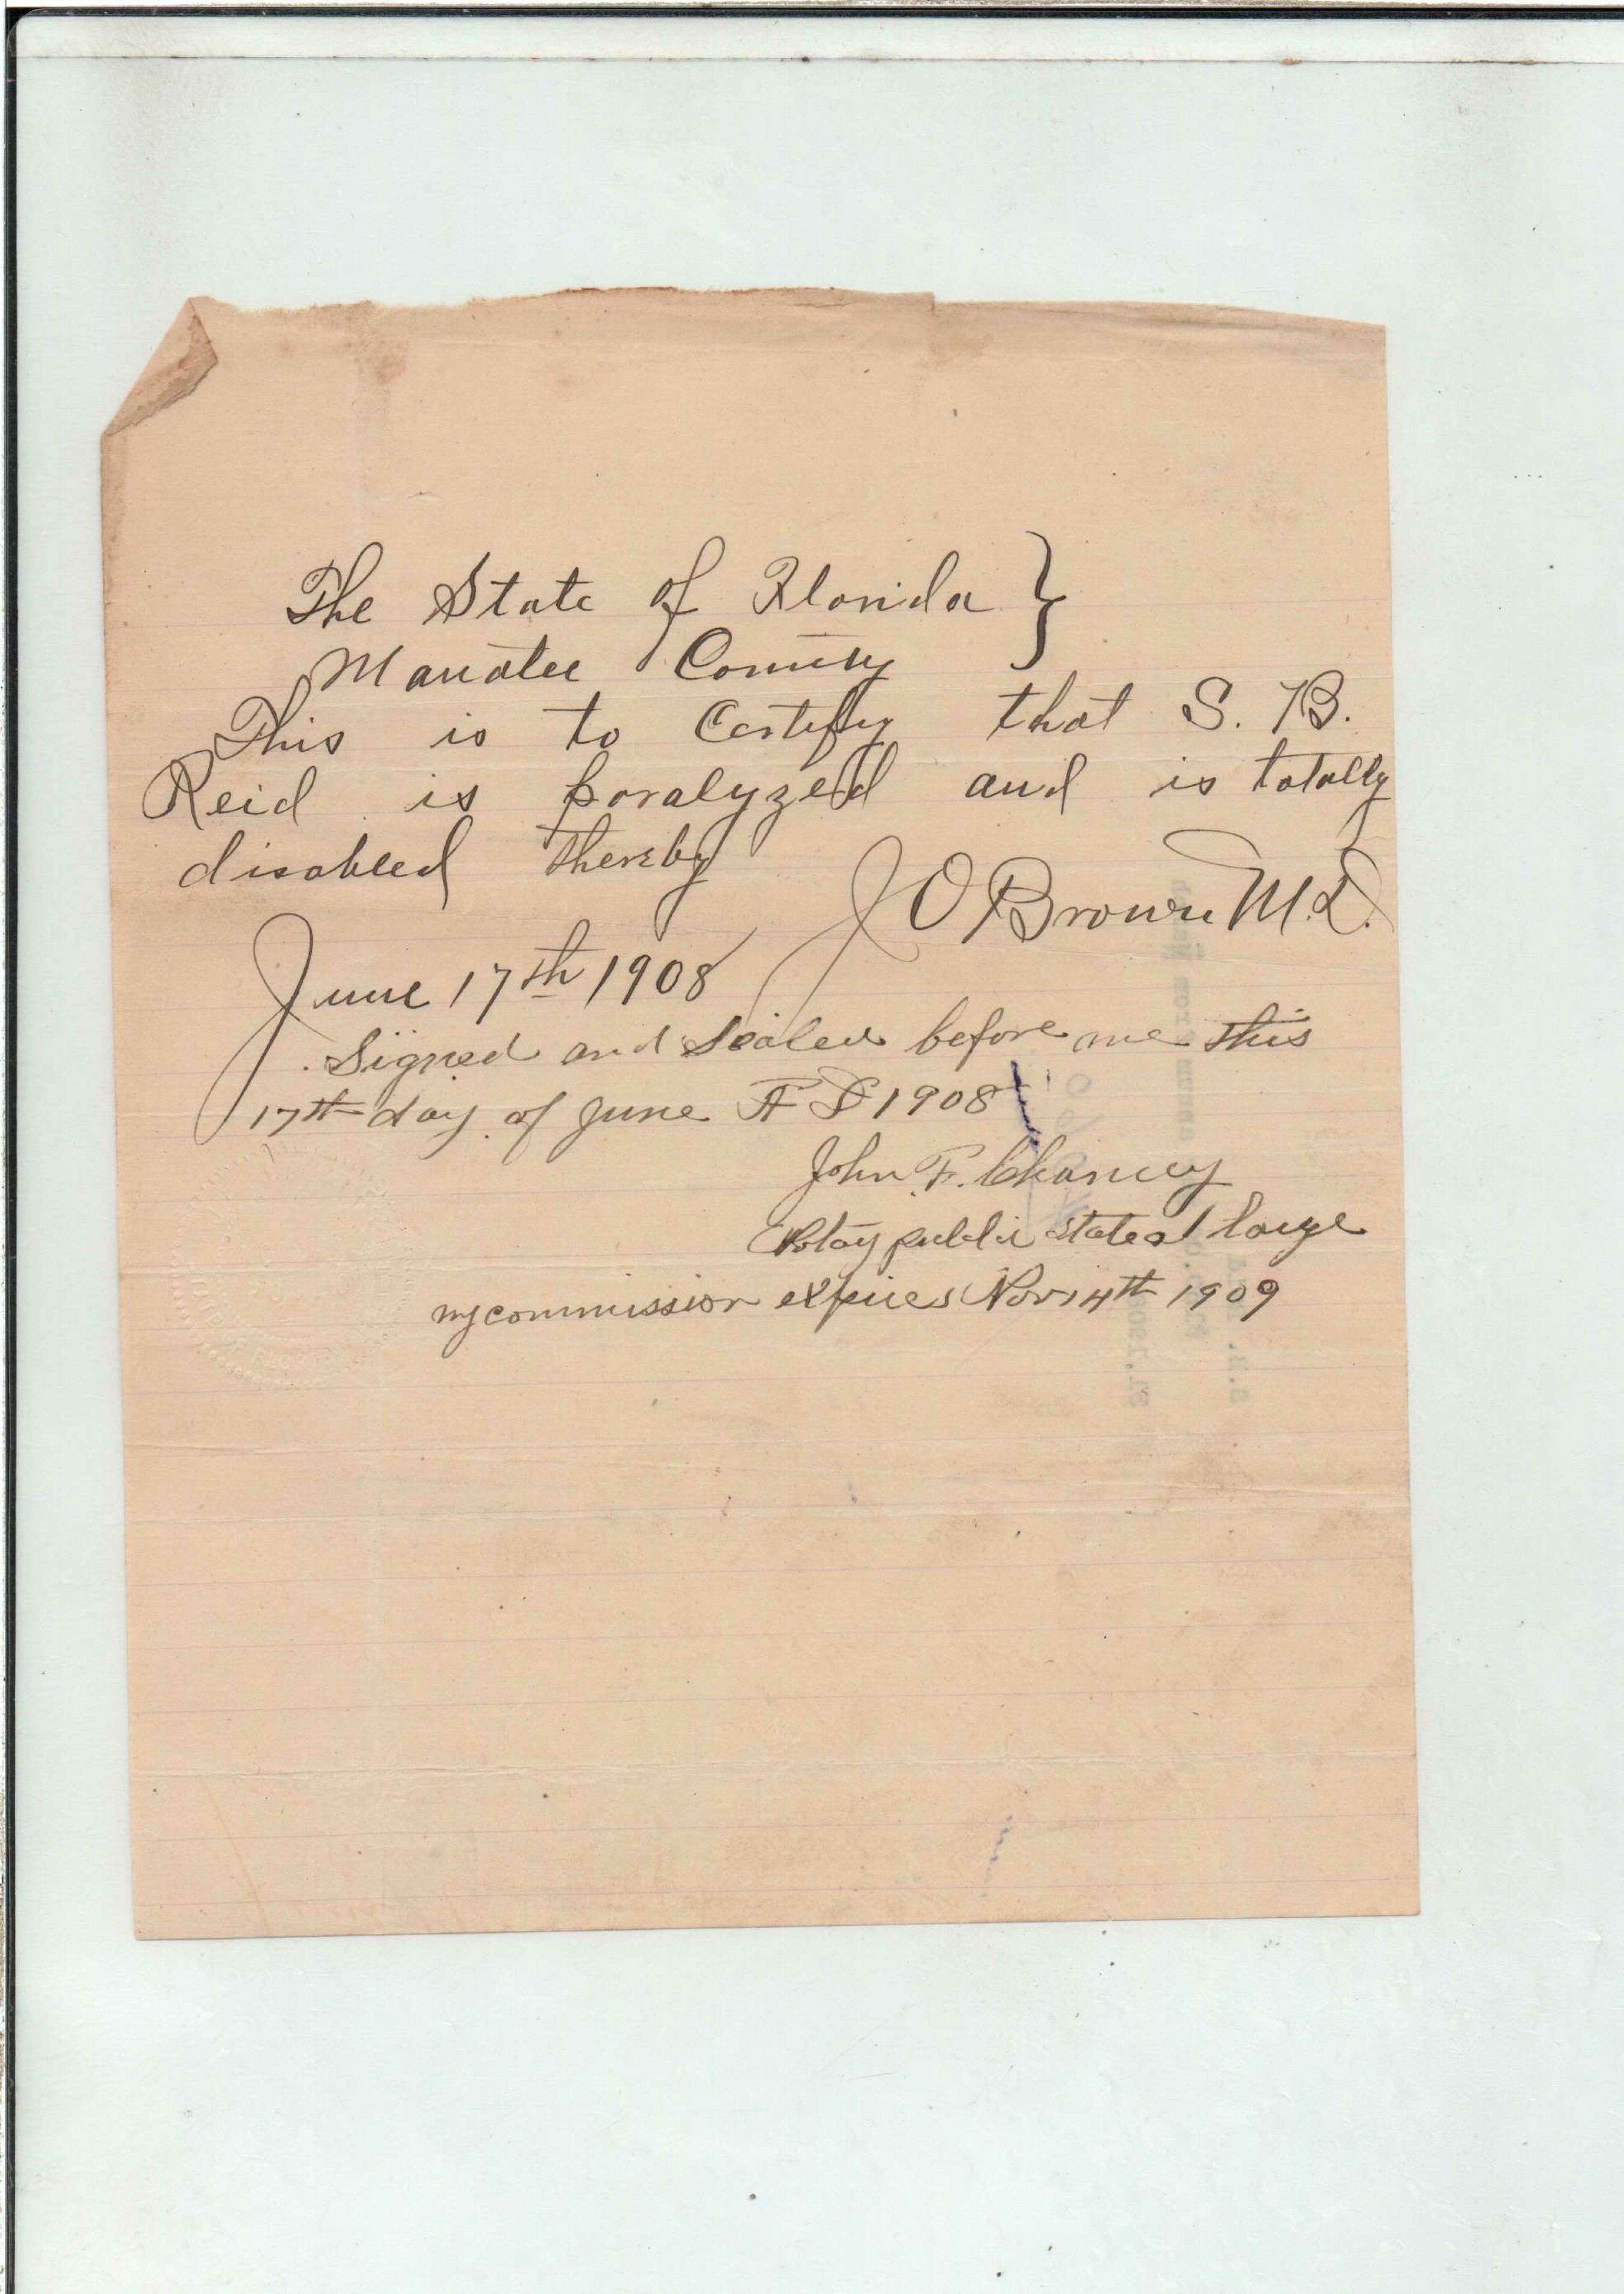 The State of Florida }
Manatee County
This is to Certify that S. B.
Reid is paralyzed and is totally
disabled thereby
J O Brown M.D.
June 17th 1908
Signed and Sealed before me this
17th day of June A D 1908
John F. Chaney
Notay public state at large
my commission expires Nov 14th 1909